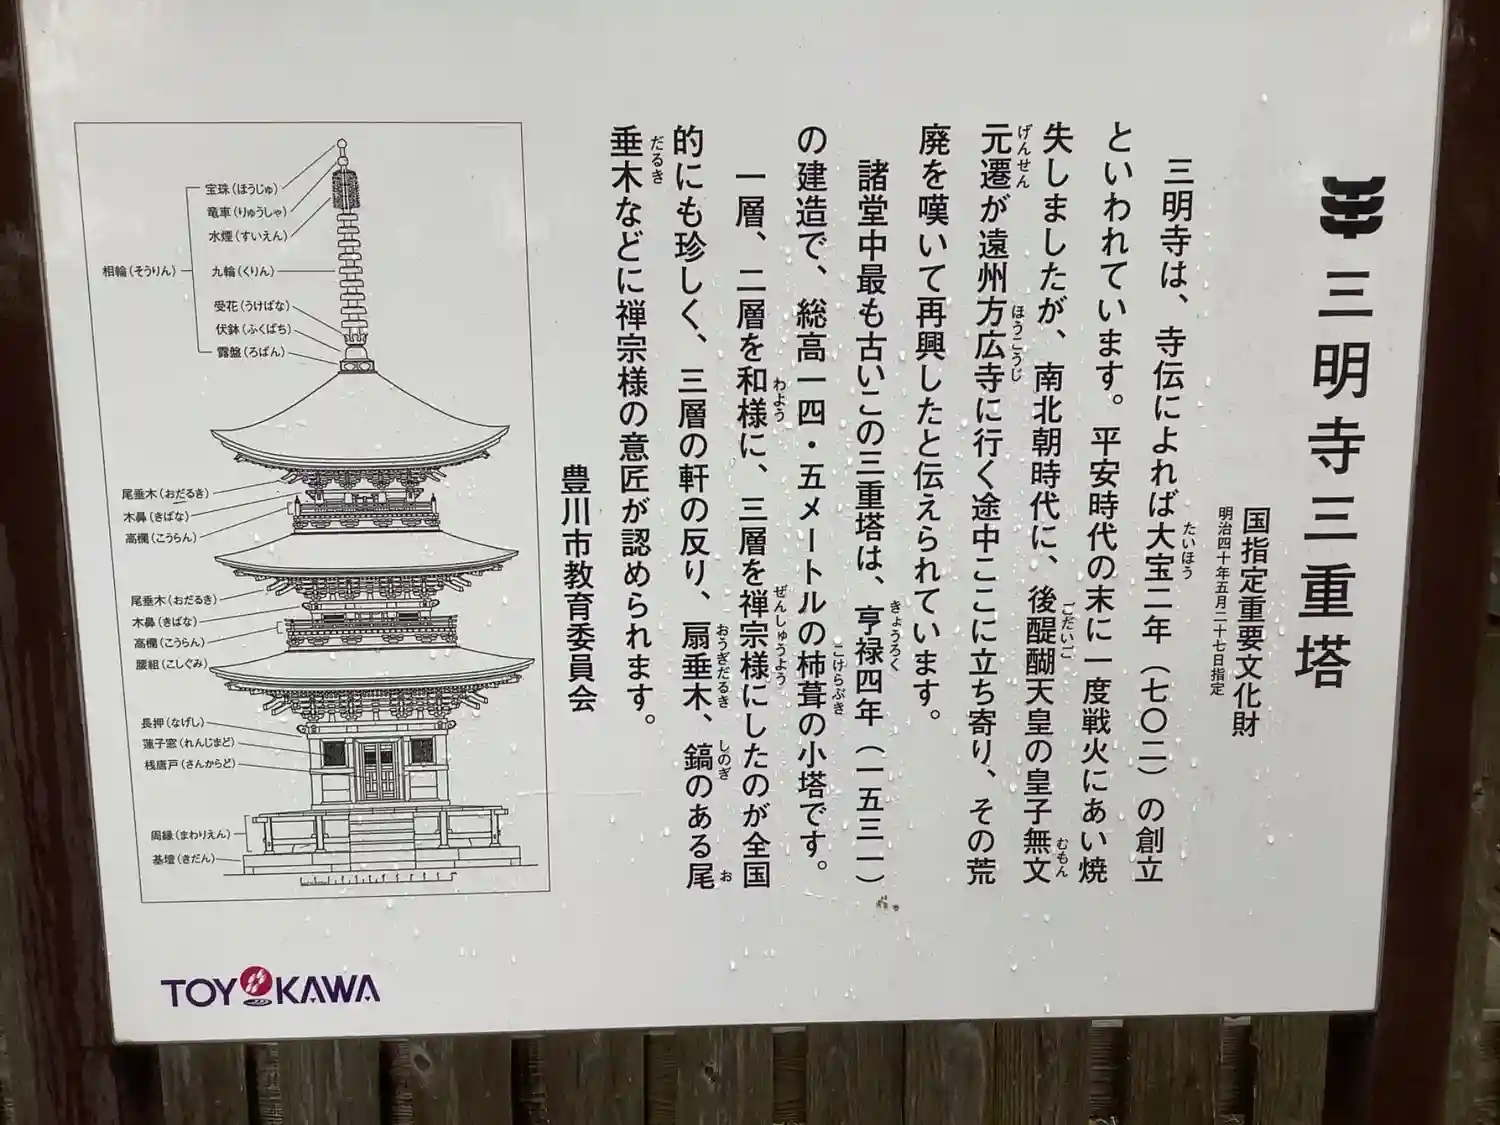 三明寺三重塔
国指定重要文化財
明治四十年五月二十七日指定
三明寺は、寺伝によれば大宝二年（七〇二）の創立
たいほう
といわれています。平安時代の末に一度戦火にあい焼
失しましたが、南北朝時代に、後醍醐天皇の皇子無文
ごだいご
むもん
元遷が遠州方広寺に行く途中ここに立ち寄り、その荒
げんせん
ほうこうじ
廃を嘆いて再興したと伝えられています。
諸堂中最も古いこの三重塔は、亨禄四年（一五三一）
きょうろく
の建造で、総高一四・五メートルの柿葺の小塔です。
こけらぶき
一層、二層を和様に、三層を禅宗様にしたのが全国
わよう
ぜんしゅうよう
的にも珍しく、三層の軒の反り、扇垂木、鎬のある尾
おうぎだるき
しのぎ
お
垂木などに禅宗様の意匠が認められます。
だるき
豊川市教育委員会
相輪(そうりん)
宝珠(ほうじゅ)
竜車(りゅうしゃ)
水煙(すいえん)
九輪(くりん)
受花(うけばな)
伏鉢(ふくばち)
露盤(ろばん)
尾垂木(おだるき)
木鼻(きばな)
高欄(こうらん)
尾垂木(おだるき)
木鼻(きばな)
高欄(こうらん)
腰組(こしぐみ)
長押(なげし)
蓮子窓(れんじまど)
桟唐戸(さんからど)
周縁(まわりえん)
基壇(きだん)
TOYOKAWA